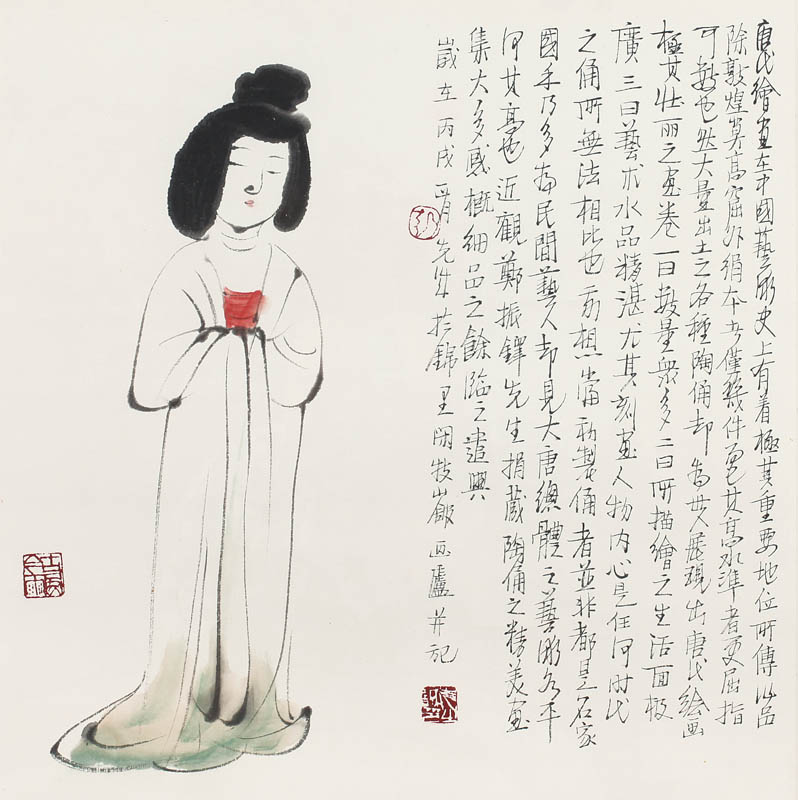 唐代繪畫在中國藝術史上有着極其重要地位所傳作品
除敦煌莫高窟外絹本者僅幾件而已其高水準者更屈指
可數也然大量出土之各種陶俑却為世人展現出唐代繪畫
極其壯麗之畫卷一曰數量衆多二曰所描繪之生活面極
廣三曰藝術水品精湛尤其刻畫人物内心是任何時代
之俑所無法相比也 想當初製俑者並非都是名家
國手乃多為民間藝人却見大唐總體之藝術水平
何其高也近觀鄭振鐸先生捐藏陶俑之精美畫
集大多感概細品之餘臨之遣興
歲在丙戌 月先生於錦里閑牧山 畫廬并記